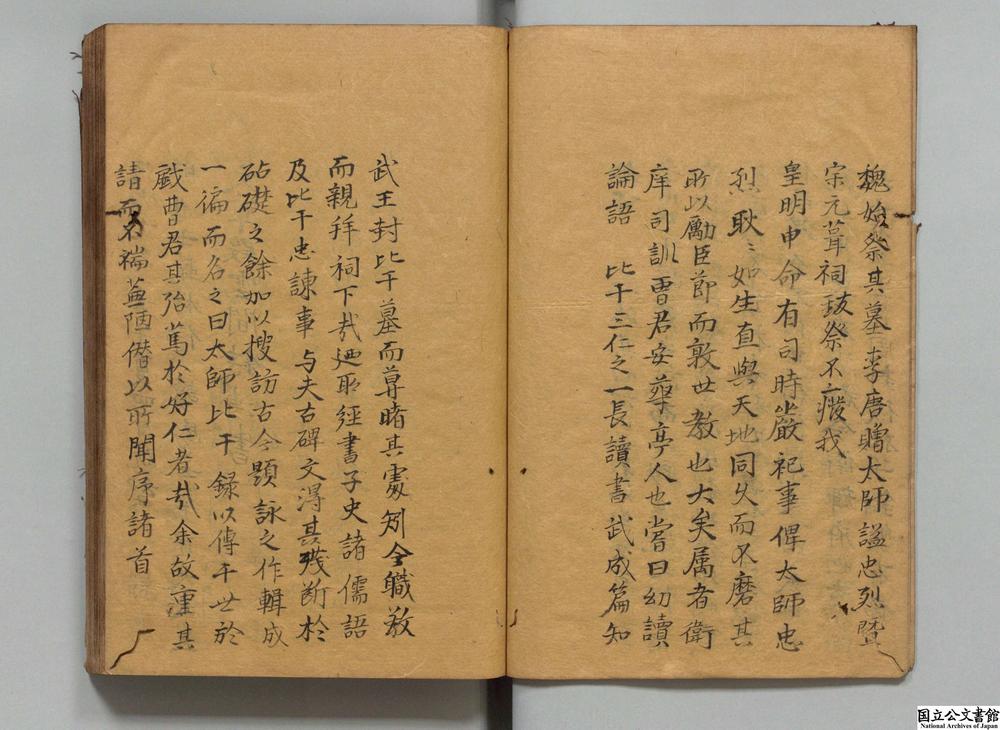 魏始祭其墓李唐贈太師謚忠烈暨
宋元葺祠致祭不廢我
皇明申命有司時嚴祀事俾太師忠
烈耿〻如生直與天地同久而不磨其
所以勵臣節而敦世教也大矣属者衛
庠司訓曹君安華亭人也嘗曰幼讀
論語 比干三仁之一長讀書武成篇知
武王封比干墓而尊睹其處矧今職教
而親拜祠下哉廼取經書子史諸儒語
及比干忠諫事与夫古碑文淂其殘断於
砧礎之餘加以搜訪古今題詠之作輯成
一徧而名之曰太師比干録以傳于世於
戯曹君其殆篤於好仁者哉余故重其
請而不揣蕪陋僣以所聞序諸首
国立公文書館
National Archives of Japan